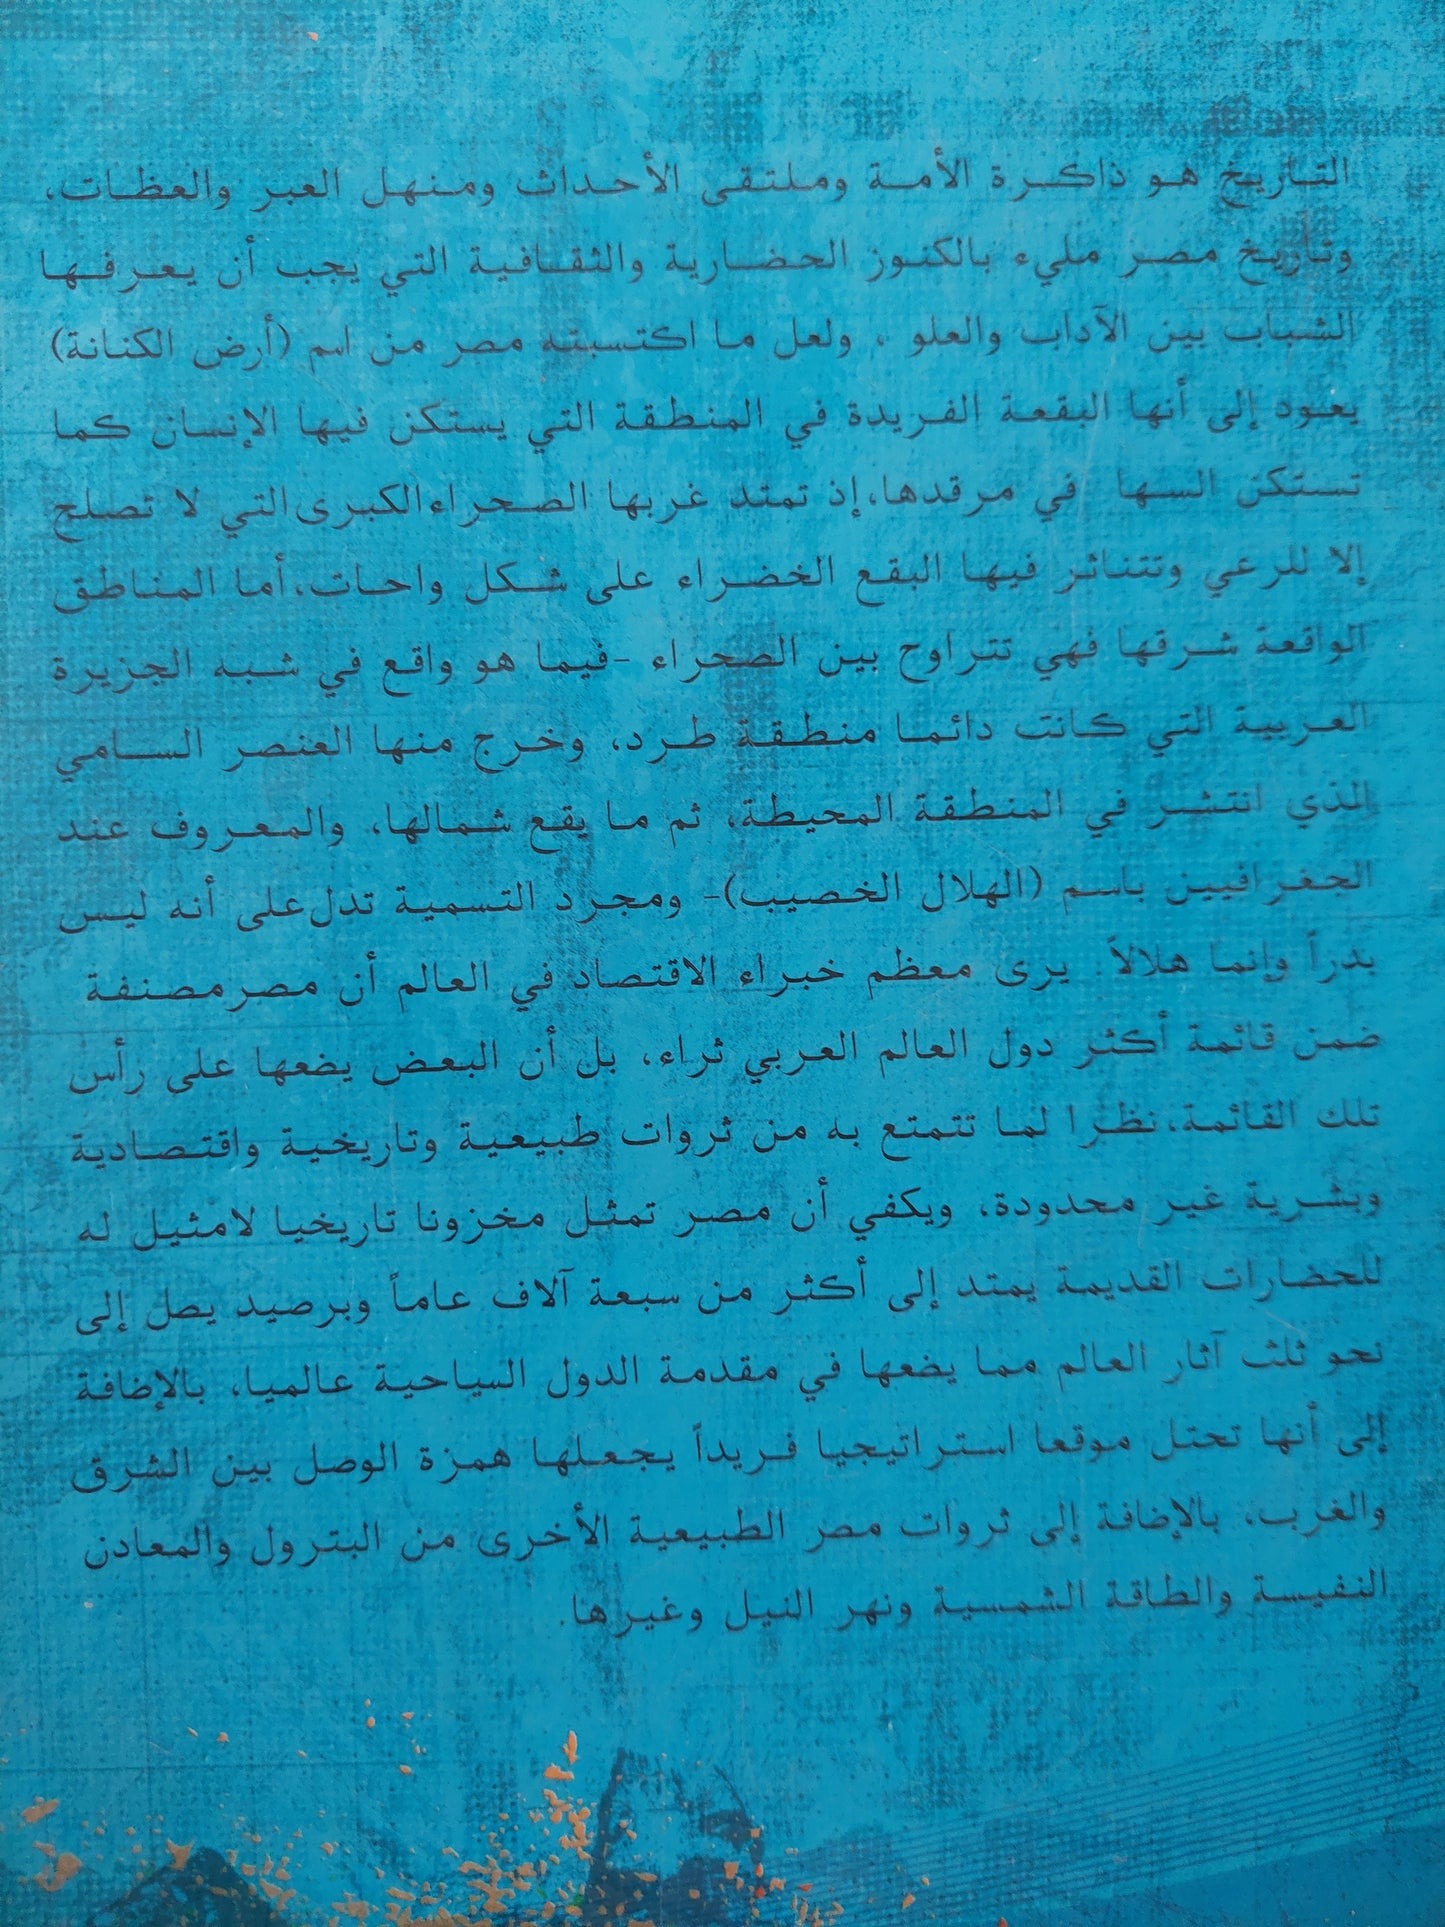 التاريخ هو ذاكرة الأمة وملتقى الأحداث ومنهل العبر والعظات،
وتاريخ مصر مليء بالكنوز الحضارية والثقافية التي يجب أن يعرفها
الشباب بين الآداب والعلو ، ولعل ما اكتسبته مصر من اسم (أرض الكنانة)
يعود إلى أنها البقعة الفريدة في المنطقة التي يستكن فيها الإنسان كما
تستكن السها في مرقدها،إذ تمتد غربها الصحراءالكبرى التي لا تصلح
إلا للرعي وتتناثر فيها البقع الخضراء على شكل واحات،أما المناطق
الواقعة شرقها فهي تتراوح بين الصحراء -فيما هو واقع في شبه الجزيرة
العربية التي كانت دائما منطقة طرد، وخرج منها العنصر السامي
الذي انتشر في المنطقة المحيطة، ثم ما يقع شمالها، والمعروف عند
الجغرافيين باسم (الهلال الخصيب)- ومجرد التسمية تدل على أنه ليس
بدراً وإنما هلالاً يرى معظم خبراء الاقتصاد في العالم أن مصر مصنفة
ضمن قائمة أكثر دول العالم العربي ثراء، بل أن البعض يضعها على رأس
تلك القائمة،نظرا لما تتمتع به من ثروات طبيعية وتاريخية واقتصادية
وبشرية غير محدودة، ويكفي أن مصر تمثل مخزونا تاريخيا لامثيل له
للحضارات القديمة يمتد إلى أكثر من سبعة آلاف عاماً وبرصيد يصل إلى
نحو ثلث آثار العالم مما يضعها في مقدمة الدول السياحية عالميا، بالإضافة
إلى أنها تحتل موقعا استراتيجيا فريداً يجعلها همزة الوصل بين الشرق
والغرب، بالإضافة إلى ثروات مصر الطبيعية الأخرى من البترول والمعادن
النفيسة والطاقة الشمسية ونهر النيل وغيرها.